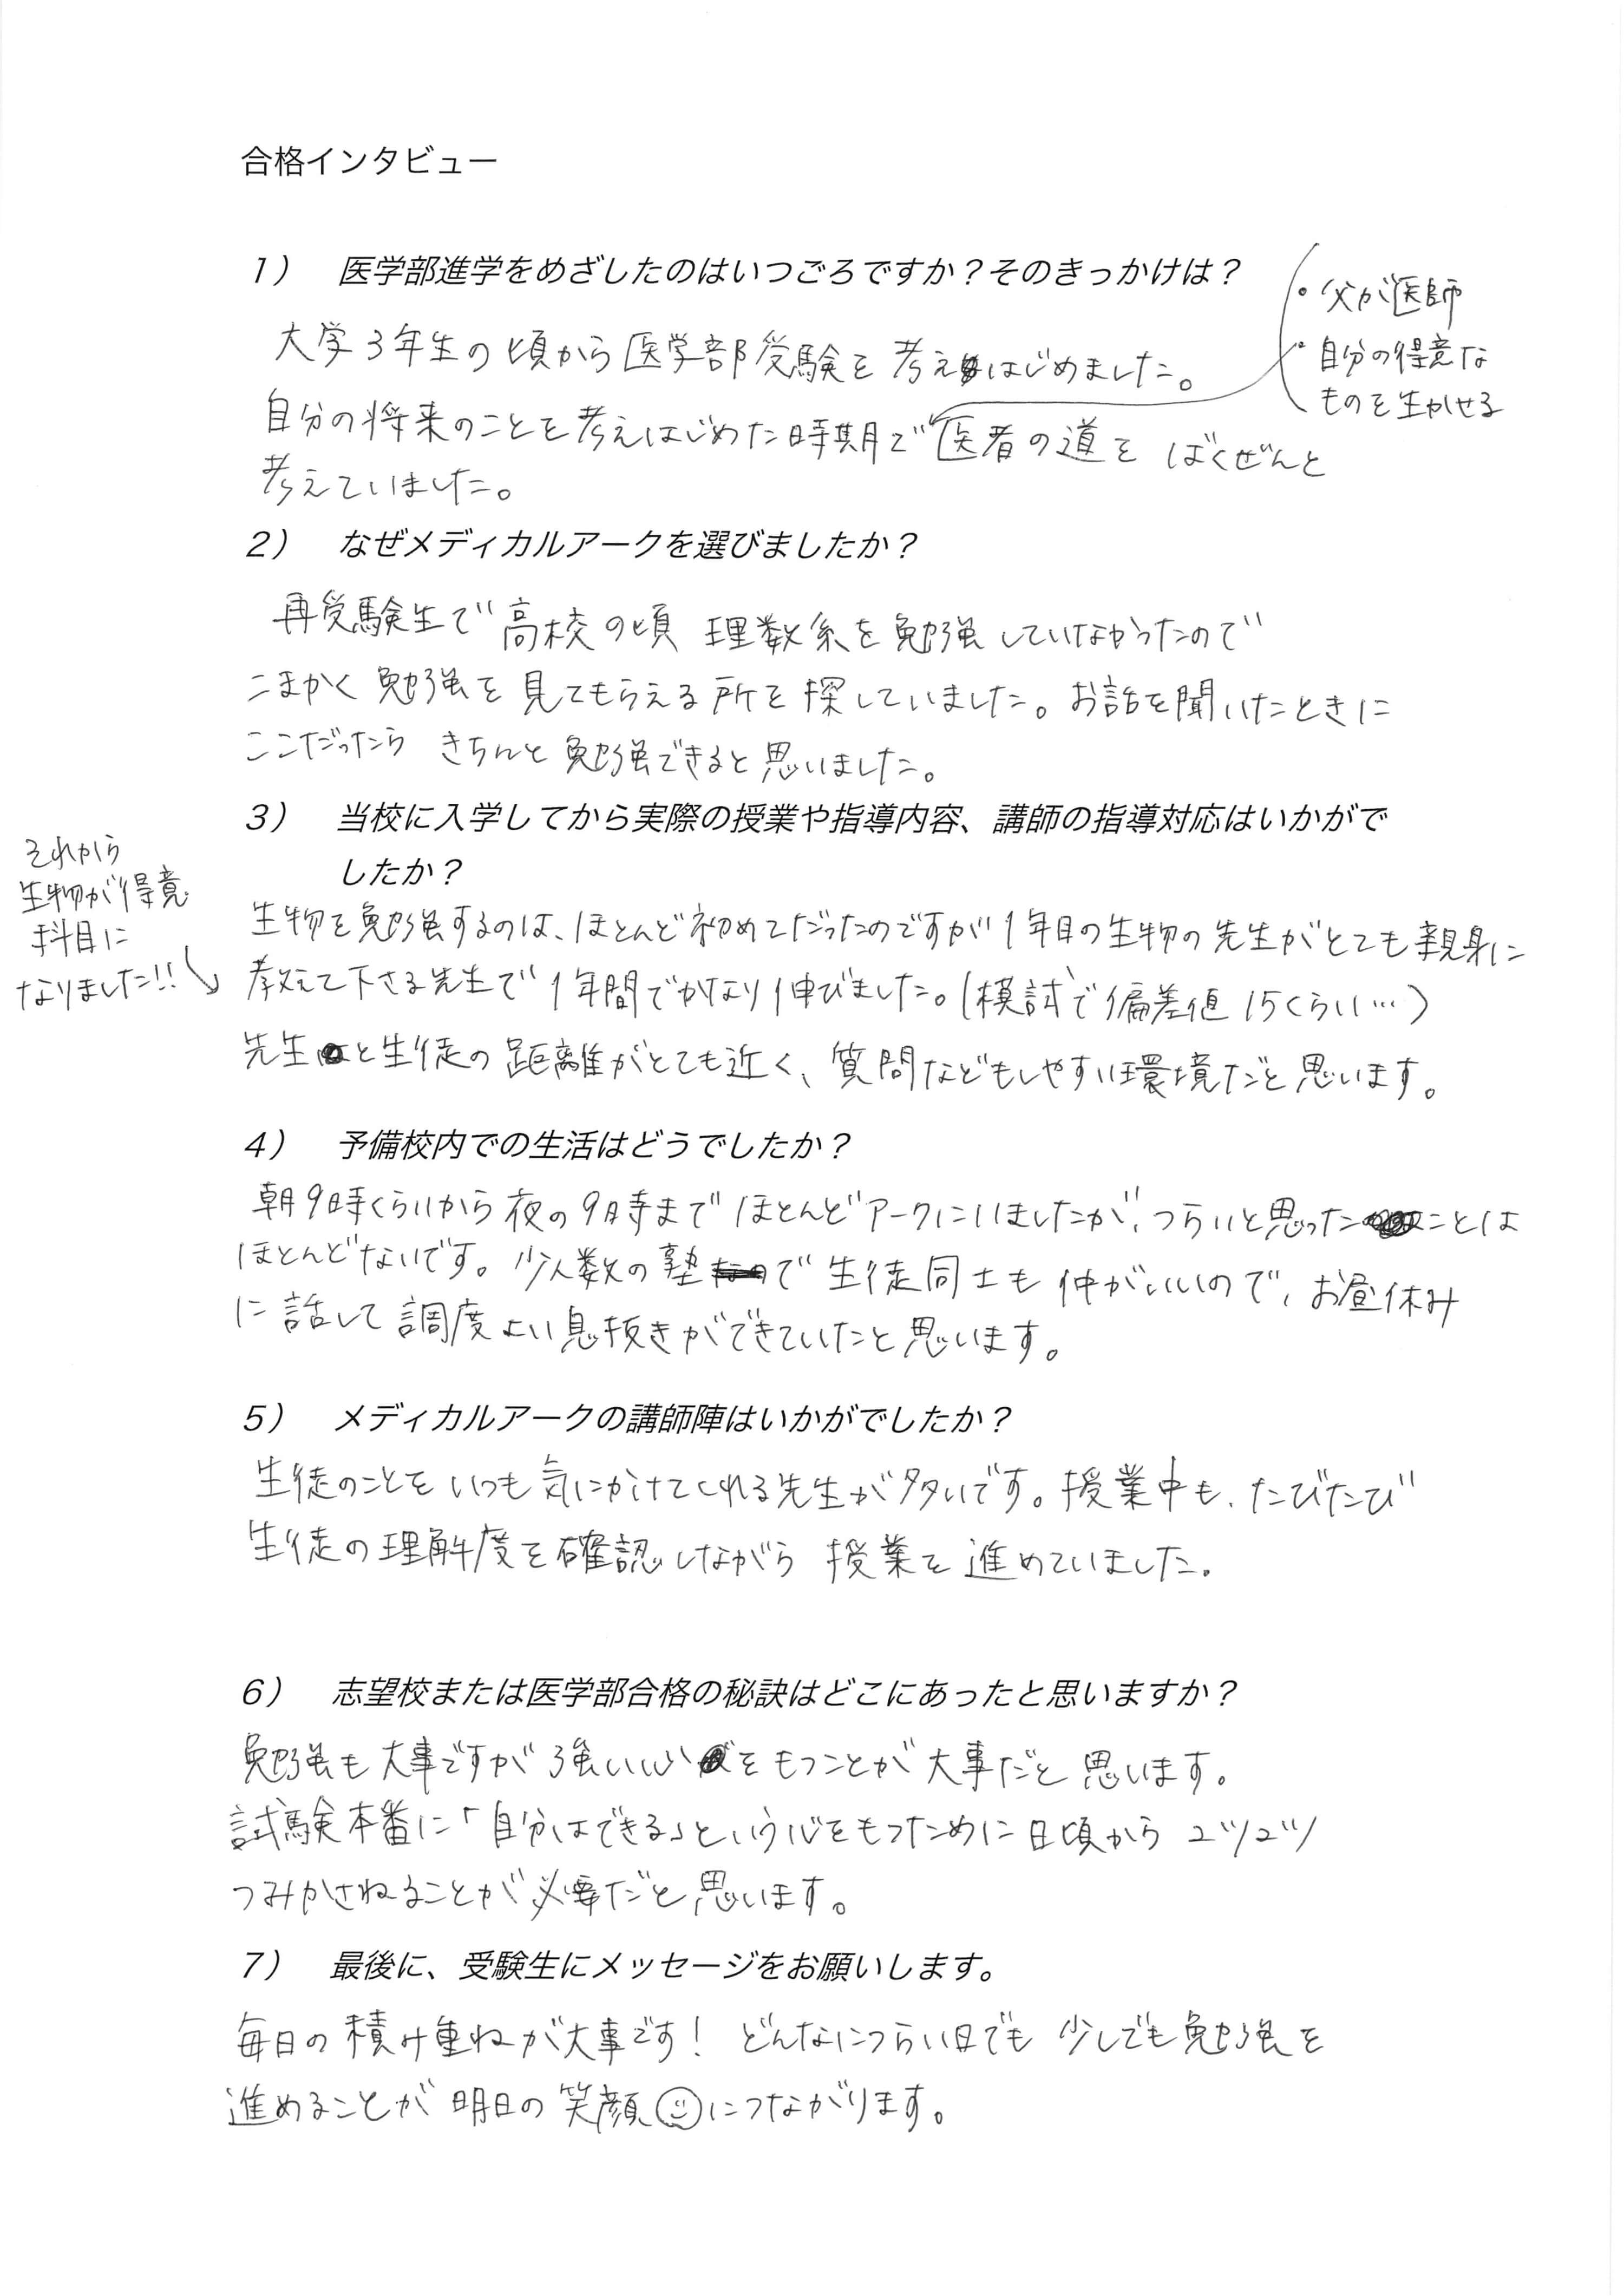 合格インタビュー
1） 医学部進学をめざしたのはいつごろですか？そのきっかけは？
・父が医師
・自分の得意な
ものを生かせる
大学3年生の頃から医学部受験を考えはじめました。
自分の将来のことを考えはじめた時期で医者の道を ばくぜんと
考えていました。
2） なぜメディカルアークを選びましたか？
再受験生で高校の頃 理数系を勉強していなかったので
こまかく勉強を見てもらえる所を探していました。お話を聞いたときに
ここだったら きちんと勉強できると思いました。
3） 当校に入学してから実際の授業や指導内容、講師の指導対応はいかがで
したか？
それから
生物が得意
科目に
なりました!!
生物を勉強するのは、ほとんど初めてだったのですが1年目の生物の先生がとても親身に
教えて下さる先生で1年間でかなり伸びました。(模試で偏差値15くらい…)
先生と生徒の距離がとても近く、質問などもしやすい環境だと思います。
4） 予備校内での生活はどうでしたか？
朝9時くらいから夜の9時までほとんどアークにいましたが、つらいと思ったことは
ほとんどないです。少人数の塾で生徒同士も仲がいいので、お昼休み
に話して調度よい息抜きができていたと思います。
5） メディカルアークの講師陣はいかがでしたか？
生徒のことをいつも気にかけてくれる先生が多いです。授業中も、たびたび
生徒の理解度を確認しながら 授業を進めていました。
6） 志望校または医学部合格の秘訣はどこにあったと思いますか？
勉強も大事ですが強い心をもつことが大事だと思います。
試験本番に「自分はできる」という心をもつために日頃からコツコツ
つみかさねることが必要だと思います。
7） 最後に、受験生にメッセージをお願いします。
毎日の積み重ねが大事です！ どんなにつらい日でも 少しでも勉強を
進めることが明日の笑顔☺につながります。